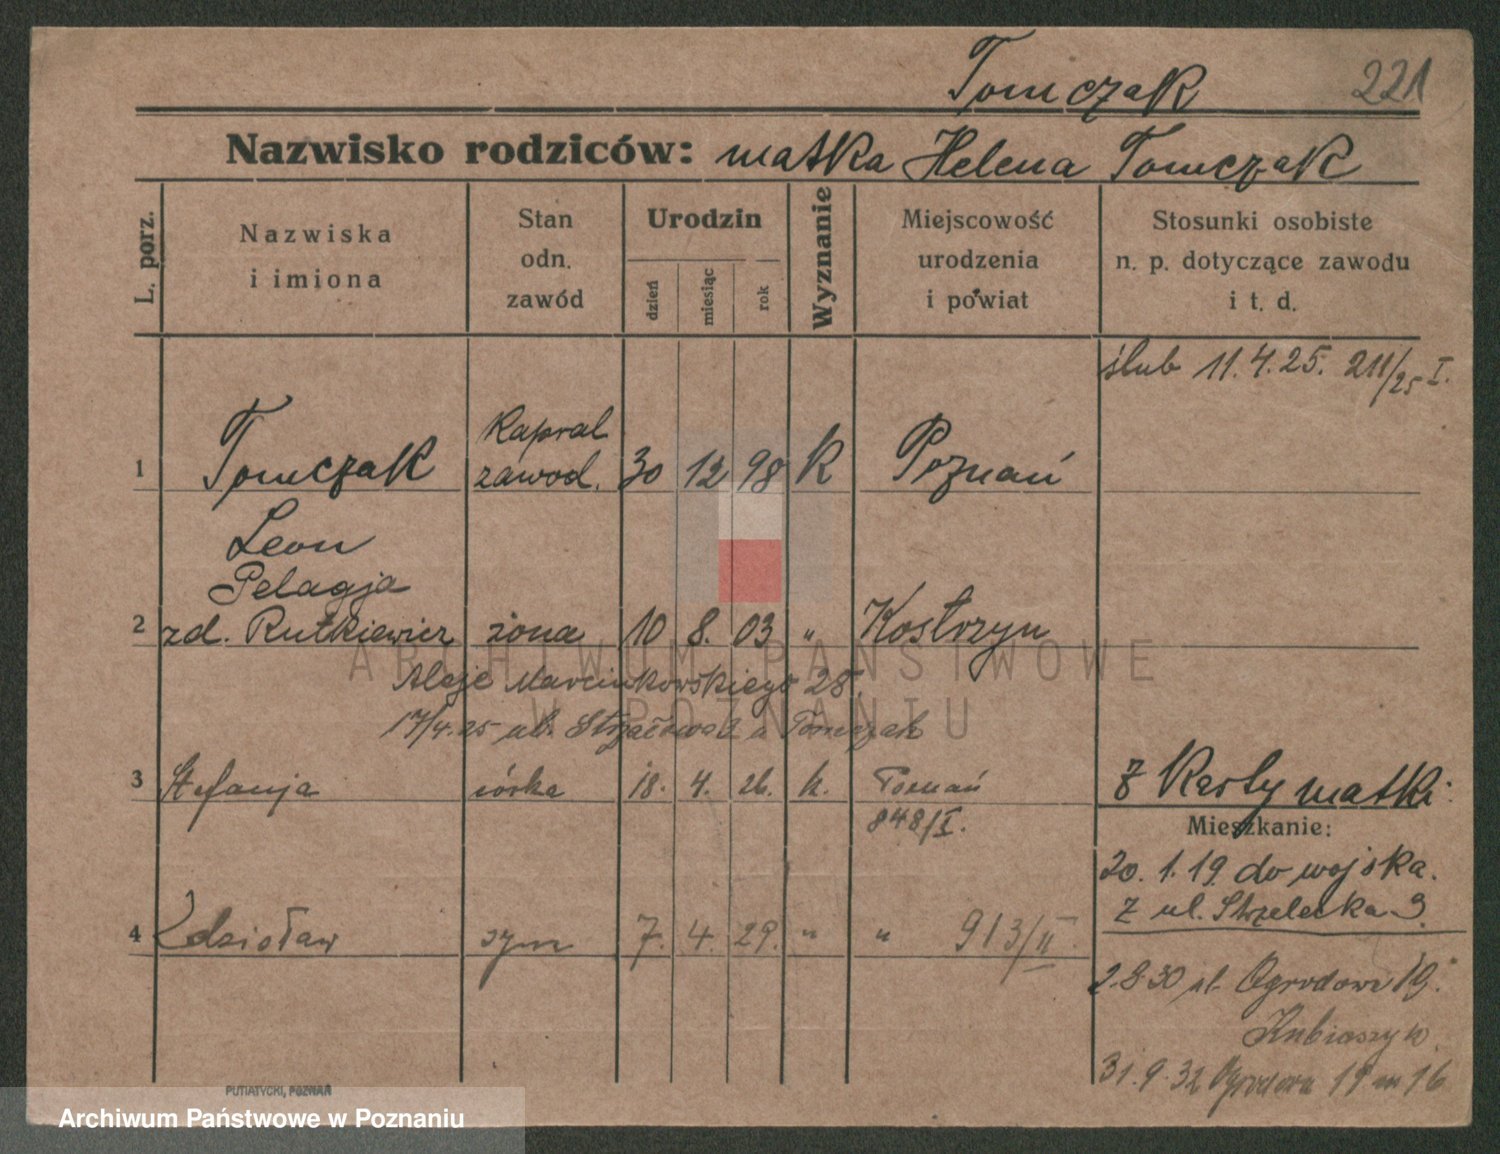 Tomczak 221
Nazwisko rodziców: matka Helena Tomczak
L. porz.
Nazwiska
i imiona
Stan
odn.
zawód
Urodzin
dzień
miesiąc
rok
Wyznanie
Miejscowość
urodzenia
i powiat
Stosunki osobiste
n. p. dotyczące zawodu
i t. d.
ślub 11.4.25. 211/25 I.
Kapral
1 Tomczak zawod. 30 12 98 K Poznań
Leon
Pelagja
2 zd. Rutkiewicz żona 10 8. 03 " Kostrzyn
Aleje Marcinkowskiego 28.
17/4.25 ul. Strzałowa 2 u Tomczak
3 Stefanja córka 18. 4. 26. k. Poznań
848/I.
z Karty matki
Mieszkanie:
20.1.19. do wojska.
z ul. Strzelecka 3
4 Zdzisław syn 7. 4. 29. " " 913/II.
2.8.30 ul. Ogrodowa 19.
31.9.32 Ogrodowa 19 m 16
PUTIATYCKI, POZNAŃ
ARCHIWUM PAŃSTWOWE
W POZNANIU
Archiwum Państwowe w Poznaniu